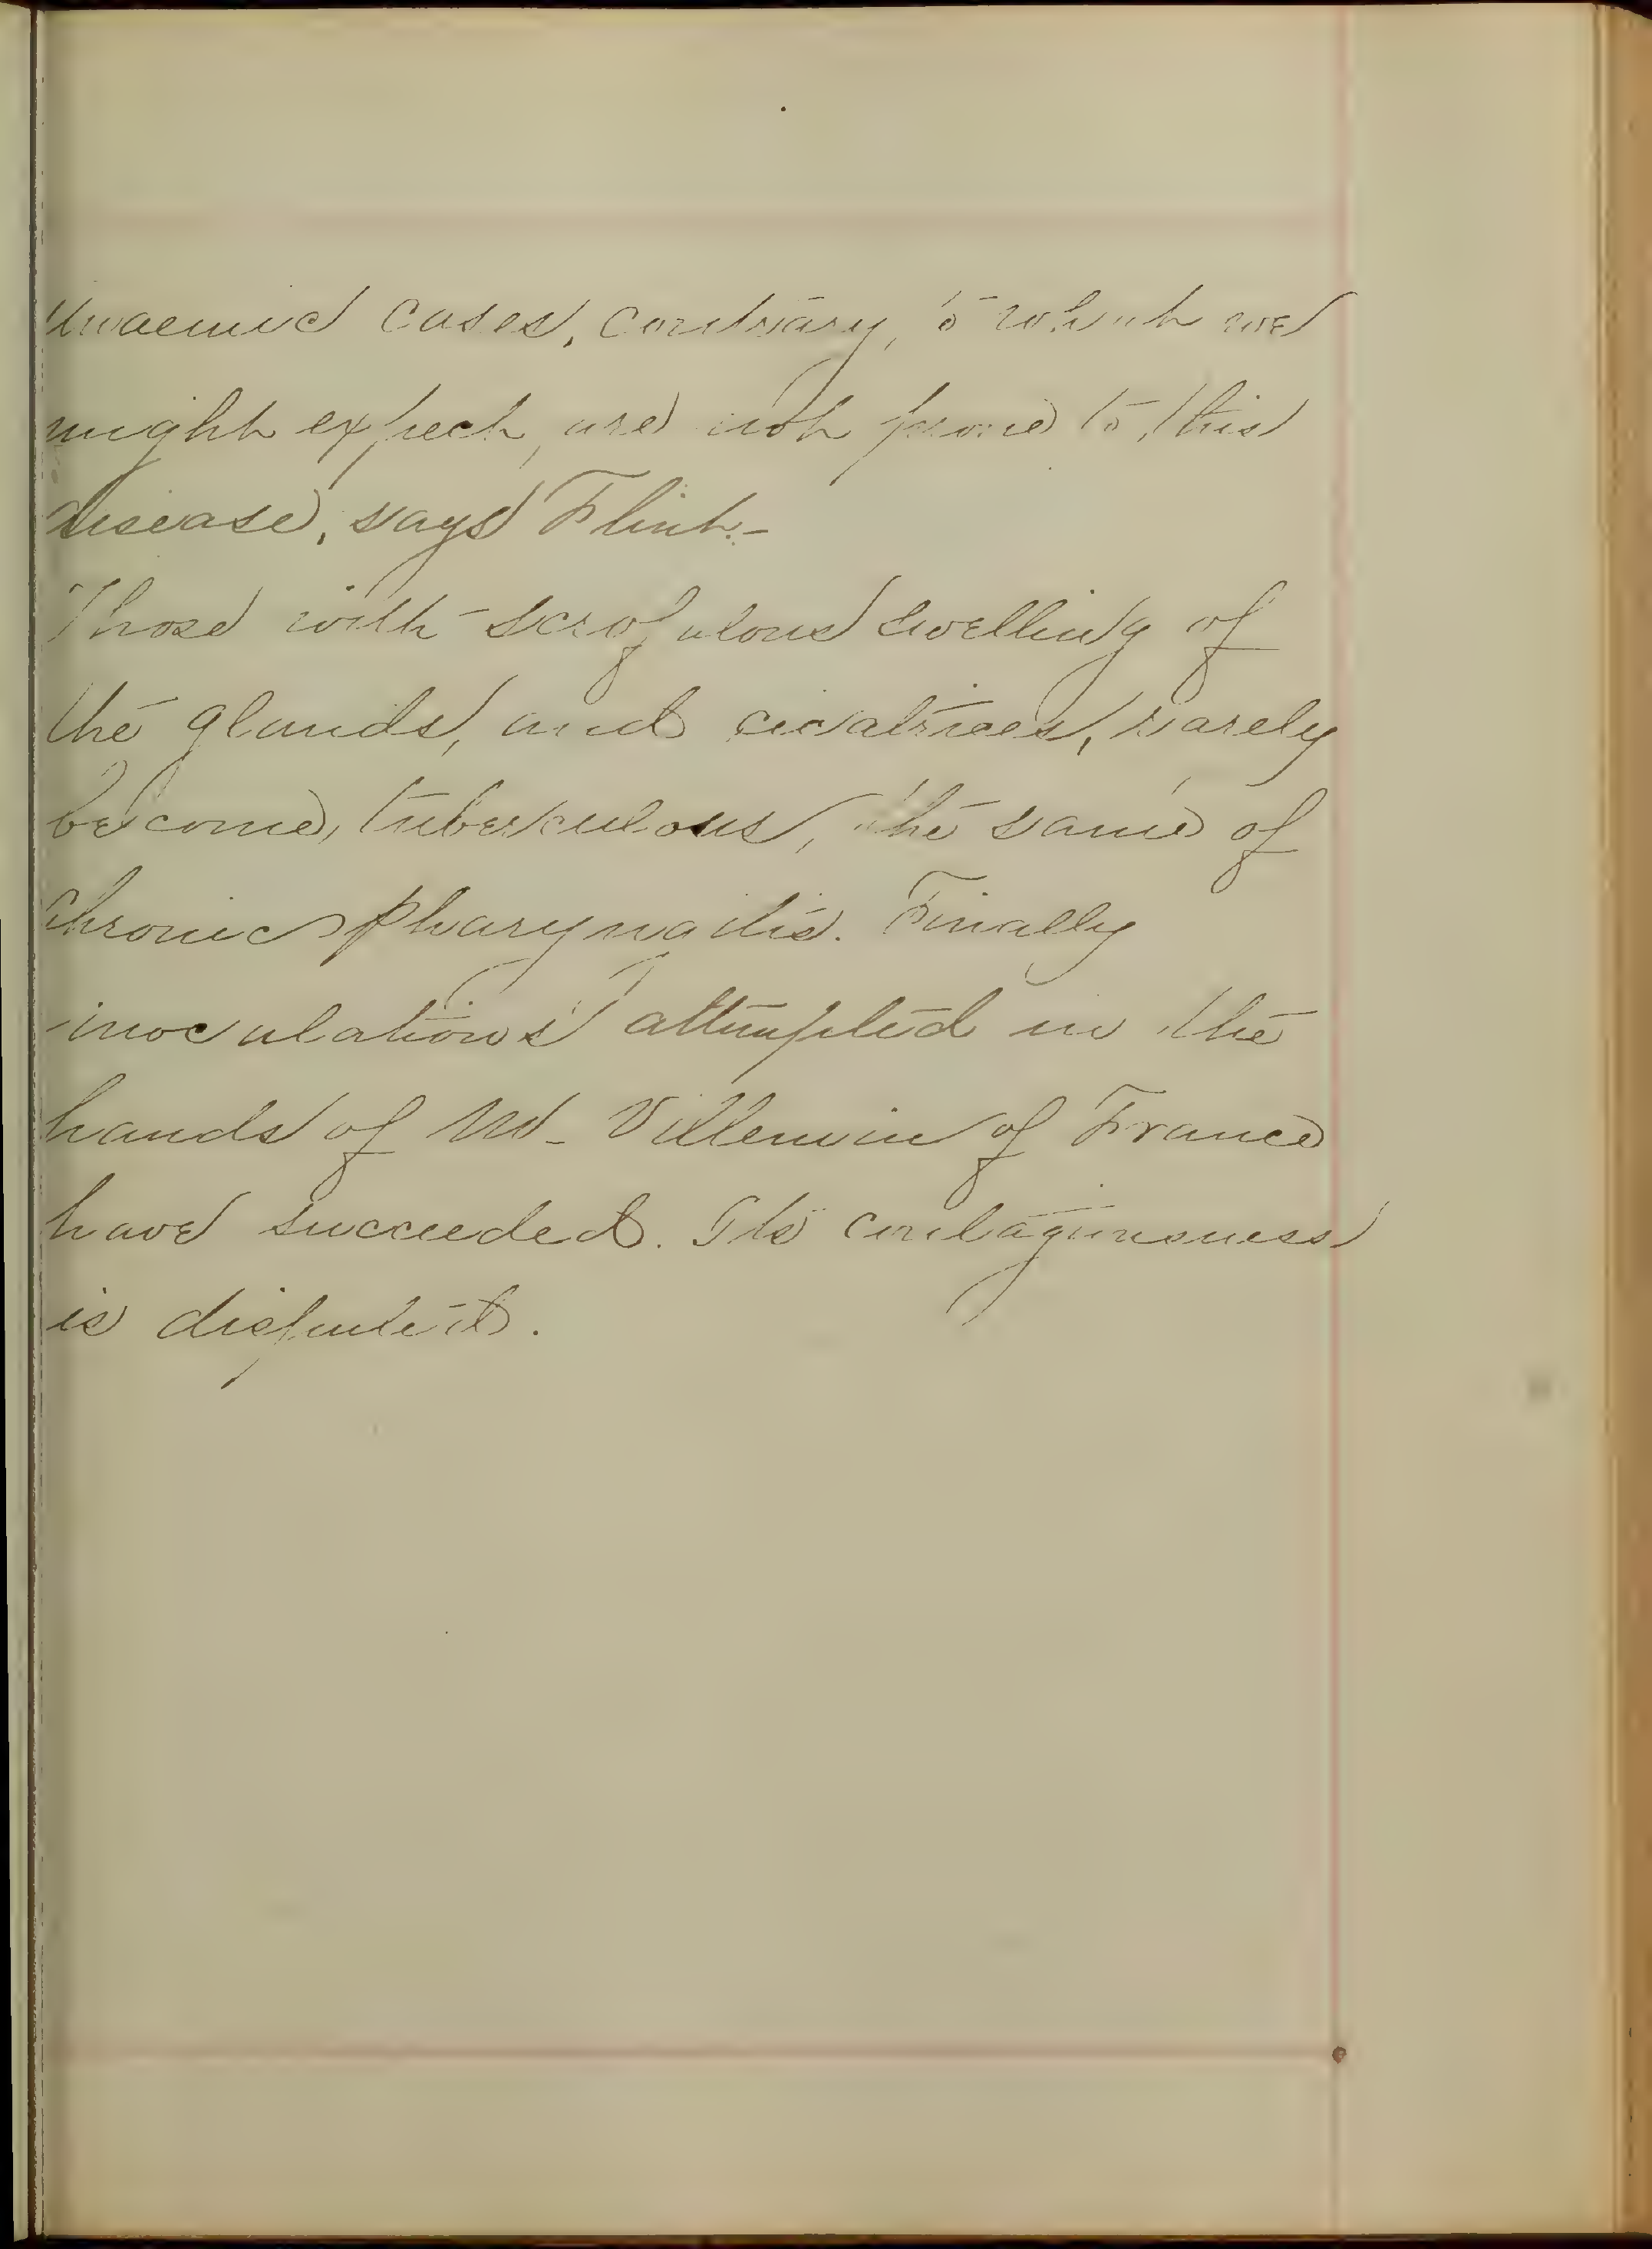 Anaemic cases, contrary, to which we
might expect, are not prone to this
disease, says Flint.-
Those with scrofulous swelling of
the glands, and cicatrices, rarely
become, tuberculous, the same of
chronic pharyngitis. Finally
inoculations attempted in the
hands of M- Villemin of France
have succeeded. Its contagiousness
is disputed.